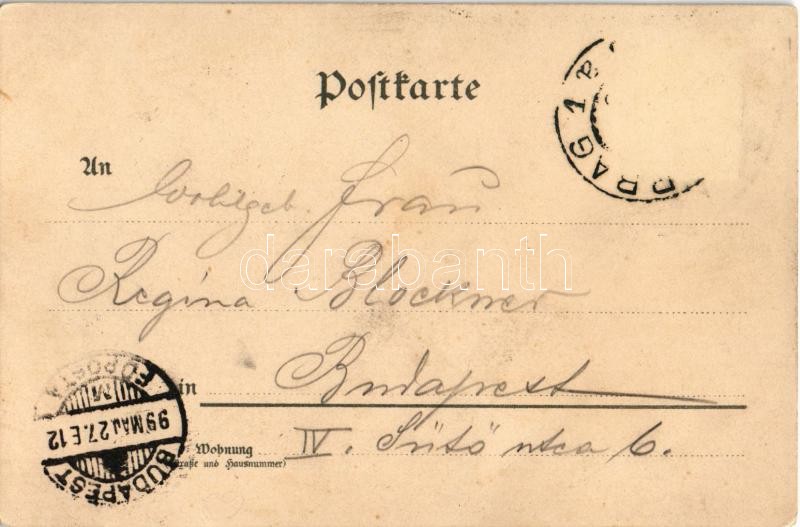 Postkarte
PRAG 1
An Wohlgeb. Frau
darabanth
Regina Blockner
in Budapest
Wohnung IV. Sütö utca 6.
(Straße und Hausnummer)
BUDAPEST
99 MAJ 27. E 12
M
FŐPOSTA